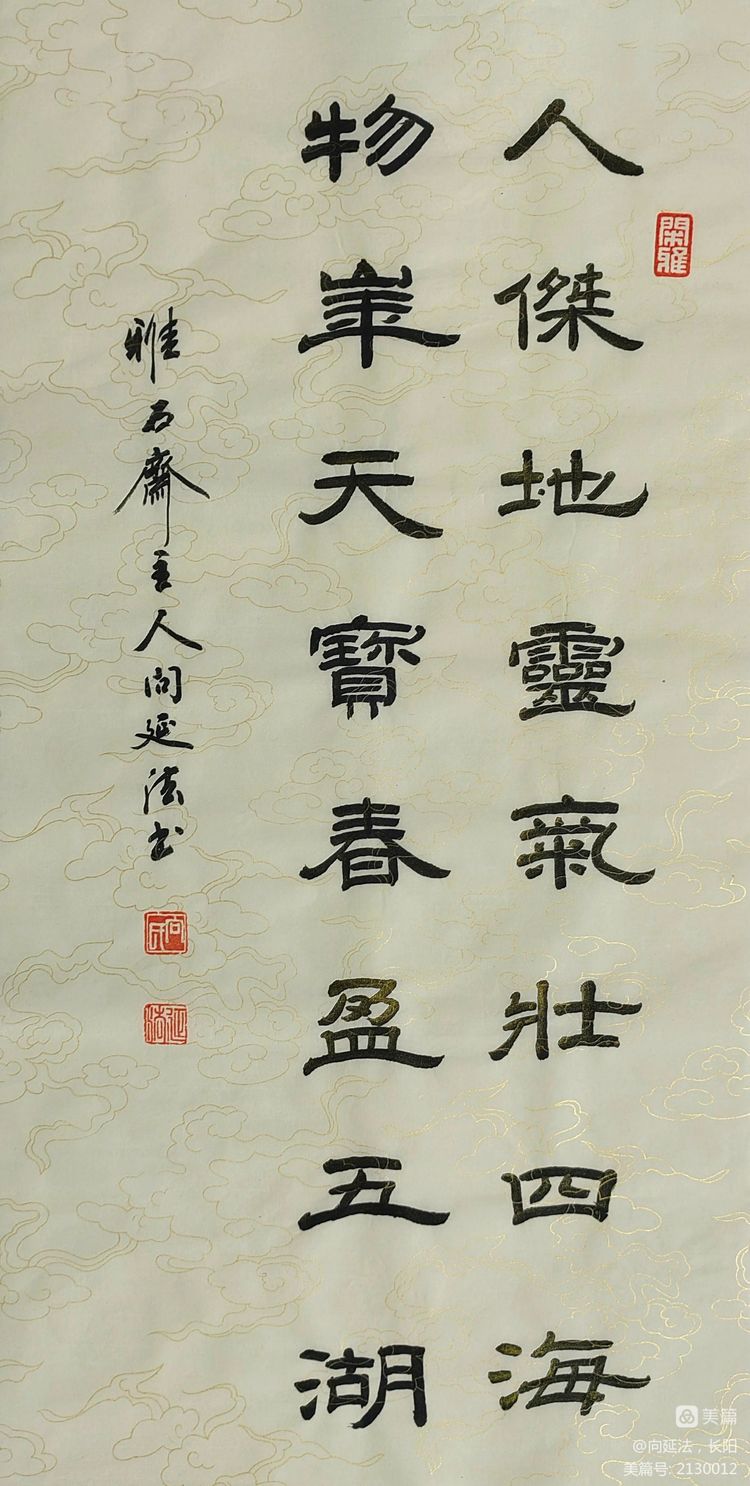 人傑地靈氣壯四海
物華天寶春盈五湖
雅石齋主人向延法书
閑雅
向氏
延法
美篇
@向延法，长阳
美篇号: 2130012